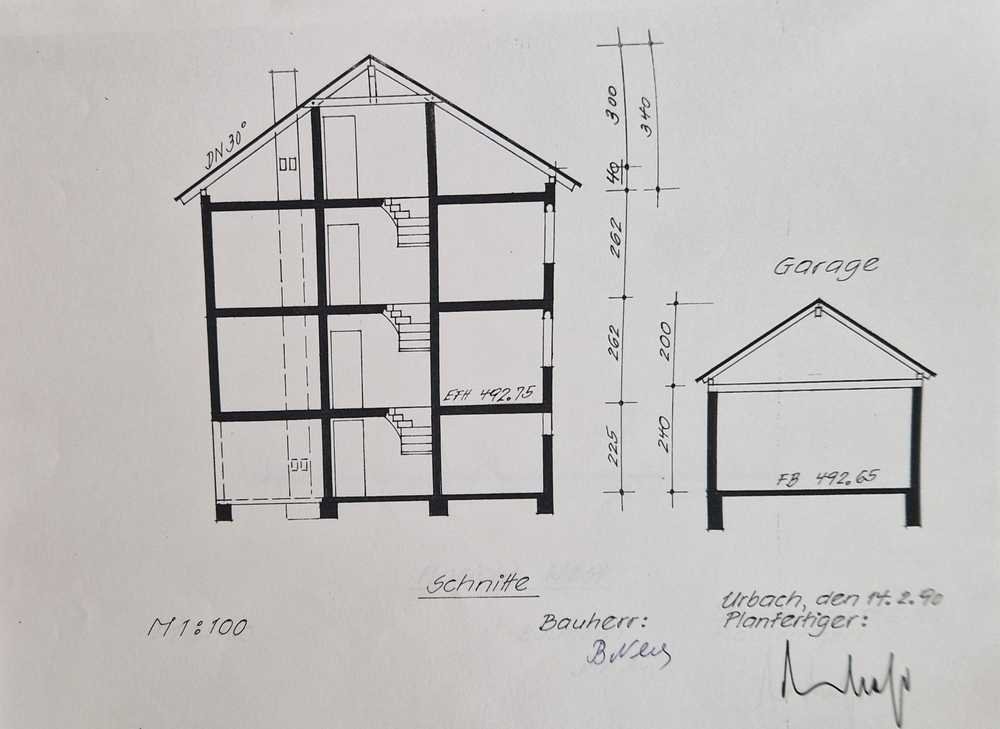 DN 30°
300
340
40
262
Garage
262
200
EFH 492.75
225
240
FB 492.65
Schnitte
M 1:100
Bauherr:
Urbach, den 14.2.90
Planfertiger: